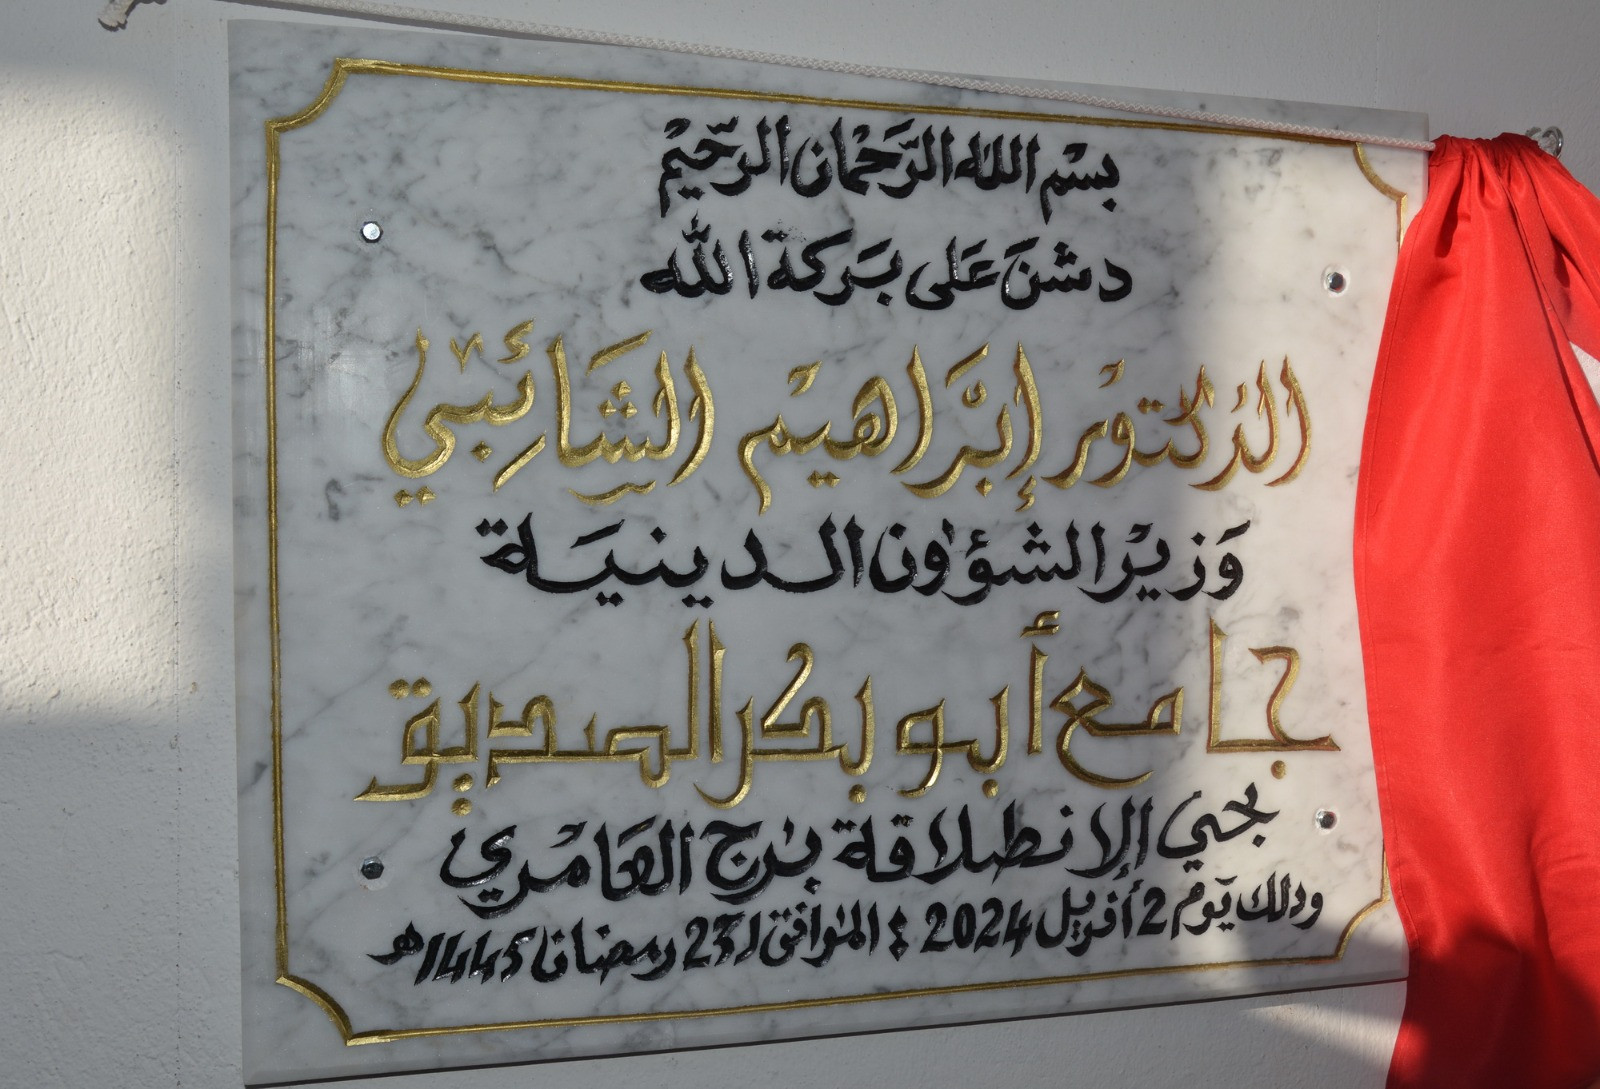 بسْم اللّٰه الرَّحْمان الرَّحيْم
دشنَ عَلى بَركة اللّٰه
الدكتوْر إبْرَاهيْم الشَائِبيْ
وَزيْر الشؤون الدينيَة
جامع أبو بكر الصديق
بحي الإنطلاقة برج العَامْري
وذلك يَوْم 2 أفريل 2024 : الموَافق لـ 23 رمضان 1445هـ